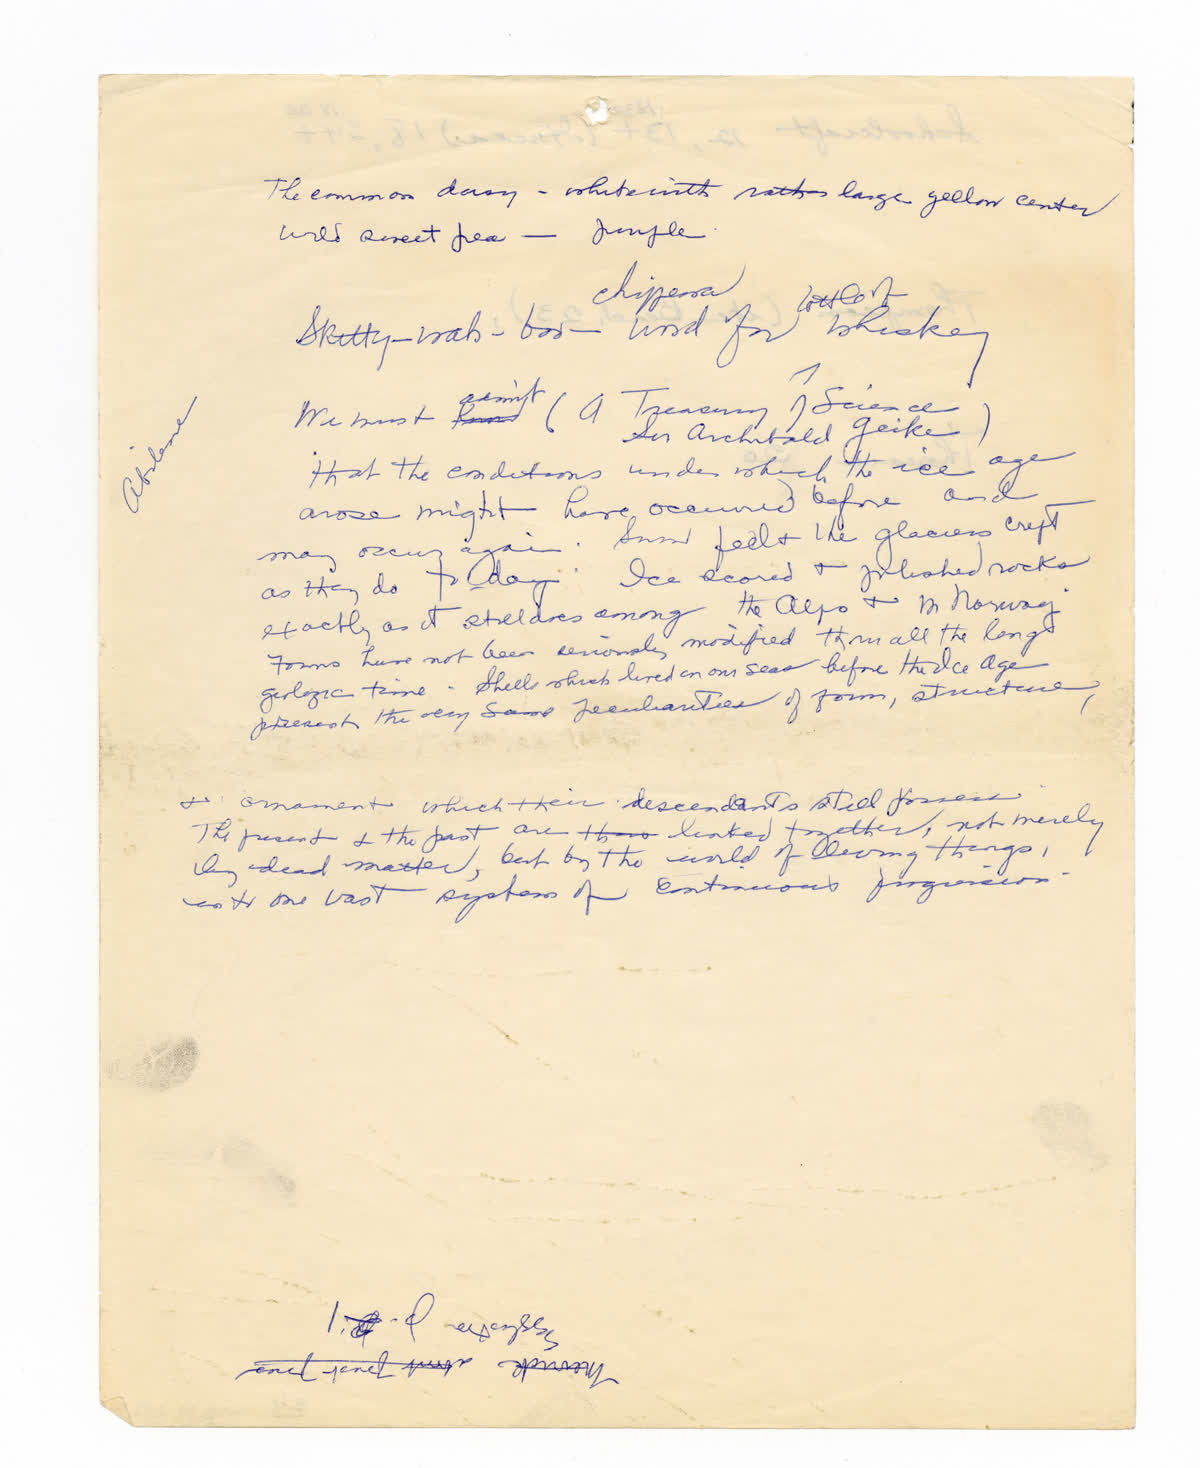 The common daisy - white with rather large yellow center
wild sweet pea — purple.
chippewa bottle of
Skitty-wab-boo- word for whiskey
admit
We must (A Treasury of Science
Sir Archibald Geike)
Abilene
that the conditions under which the ice age
arose might have occurred before and
may occur again. Snow fell & the glaciers crept
as they do to day. Ice scored & polished rocks
exactly as it still does among the Alps & in Norway.
Forms have not been seriously modified thru all the long
geologic time. Shells which lived in our seas before the Ice Age
present the very same peculiarities of form, structure,
& ornament which their descendants still possess.
The present & the past are linked together, not merely
by dead matter, but by the world of living things,
into one vast system of continuous progression.
Merrick about
p. 1